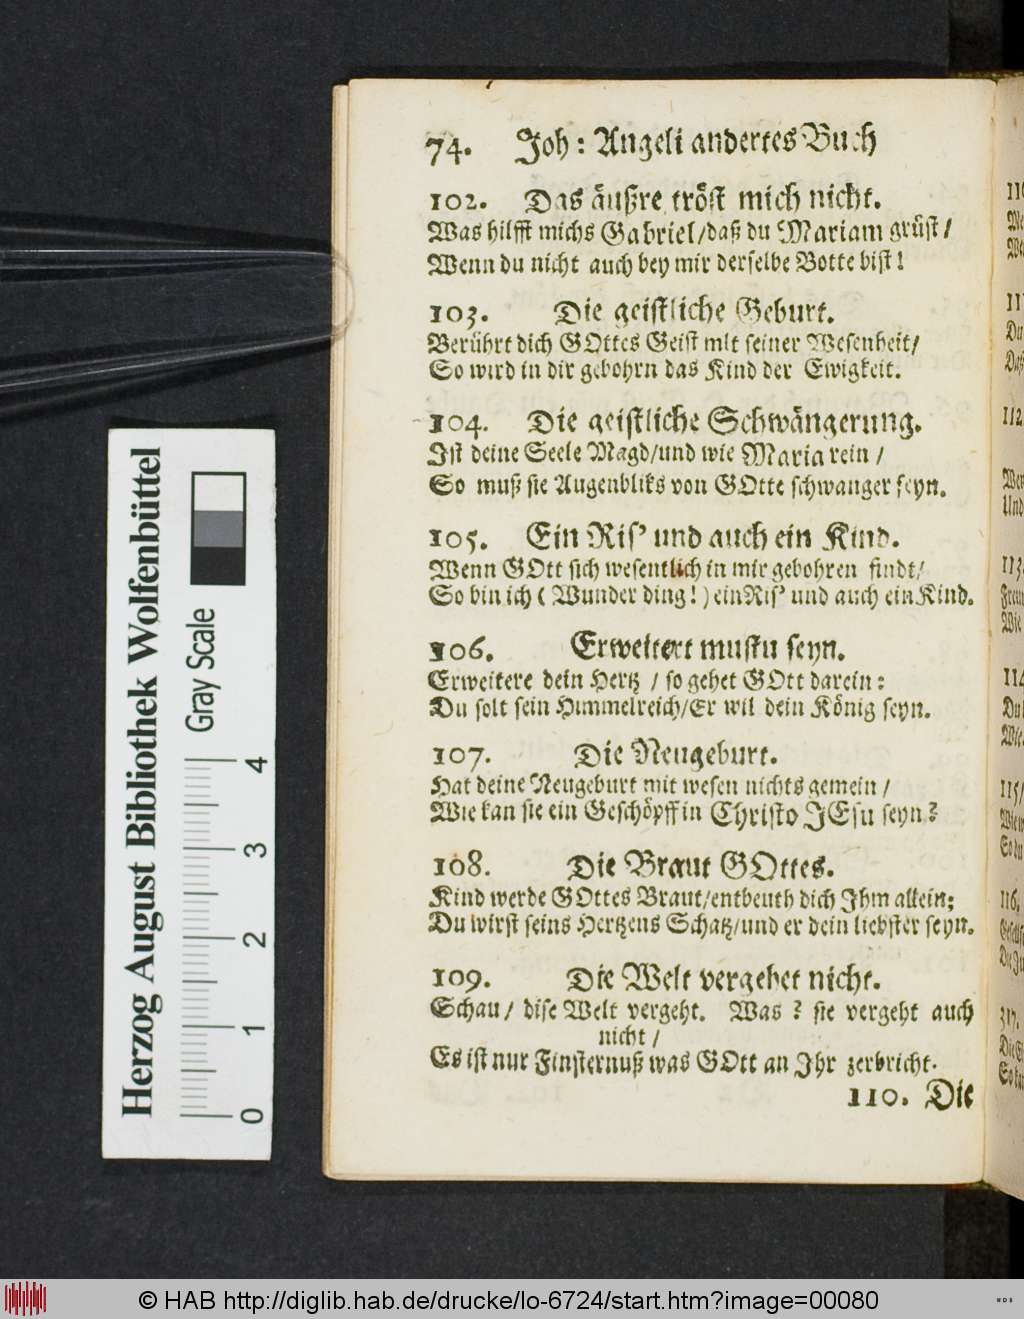 74. Joh: Angeli andertes Buch
102. Das äußre tröst mich nicht.
Was hilfft michs Gabriel/daß du Mariam grüst/
Wenn du nicht auch bey mir derselbe Botte bist!
103. Die geistliche Geburt.
Berührt dich GOttes Geist mit seiner Wesenheit/
So wird in dir gebohrn das Kind der Ewigkeit.
104. Die geistliche Schwängerung.
Ist deine Seele Magd/und wie Maria rein/
So muß sie Augenbliks von GOtte schwanger seyn.
105. Ein Ris' und auch ein Kind.
Wenn GOtt sich wesentlich in mir gebohren findt/
So bin ich (Wunder ding!) ein Ris' und auch ein Kind.
106. Erweitert mustu seyn.
Erweitere dein Hertz / so gehet GOtt darein:
Du solt sein Himmelreich/Er wil dein König seyn.
107. Die Neugeburt.
Hat deine Neugeburt mit wesen nichts gemein/
Wie kan sie ein Geschöpff in Christo JEsu seyn?
108. Die Braut GOttes.
Kind werde GOttes Braut/entbeuth dich Ihm allein;
Du wirst seins Hertzens Schatz/und er dein liebster seyn.
109. Die Welt vergehet nicht.
Schau/ dise Welt vergeht. Was? sie vergeht auch
nicht/
Es ist nur Finsternuß was GOtt an Ihr zerbricht.
110. Die
Herzog August Bibliothek Wolfenbüttel
Gray Scale
0 1 2 3 4
© HAB http://diglib.hab.de/drucke/lo-6724/start.htm?image=00080